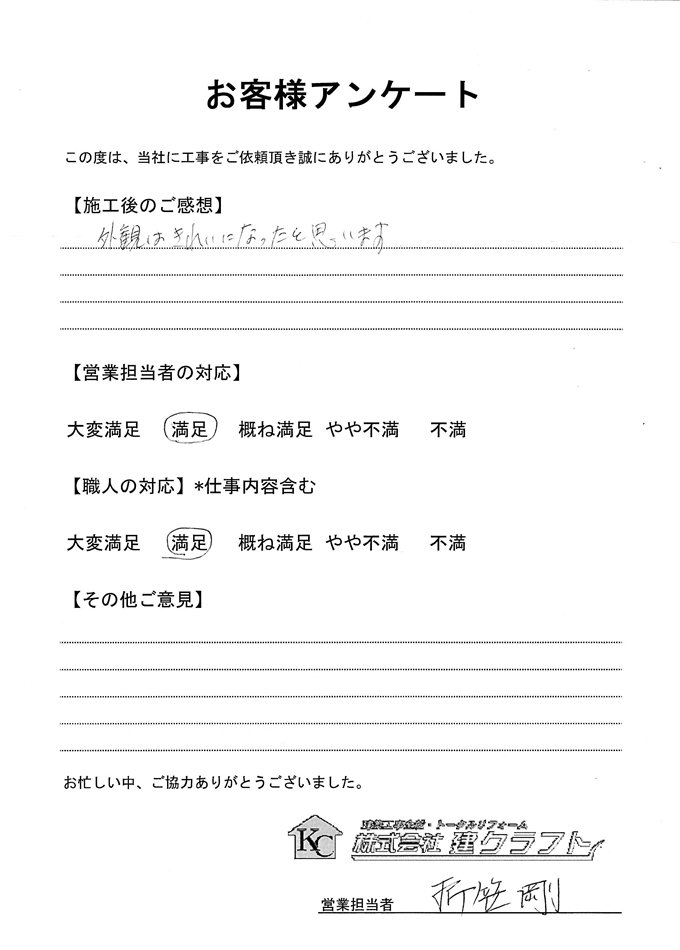 お客様アンケート
この度は、当社に工事をご依頼頂き誠にありがとうございました。
【施工後のご感想】
外観はきれいになったと思っています
【営業担当者の対応】
大変満足 満足 概ね満足 やや不満 不満
【職人の対応】*仕事内容含む
大変満足 満足 概ね満足 やや不満 不満
【その他ご意見】
お忙しい中、ご協力ありがとうございました。
KC
株式会社 建クラフト
営業担当者 折笠 剛